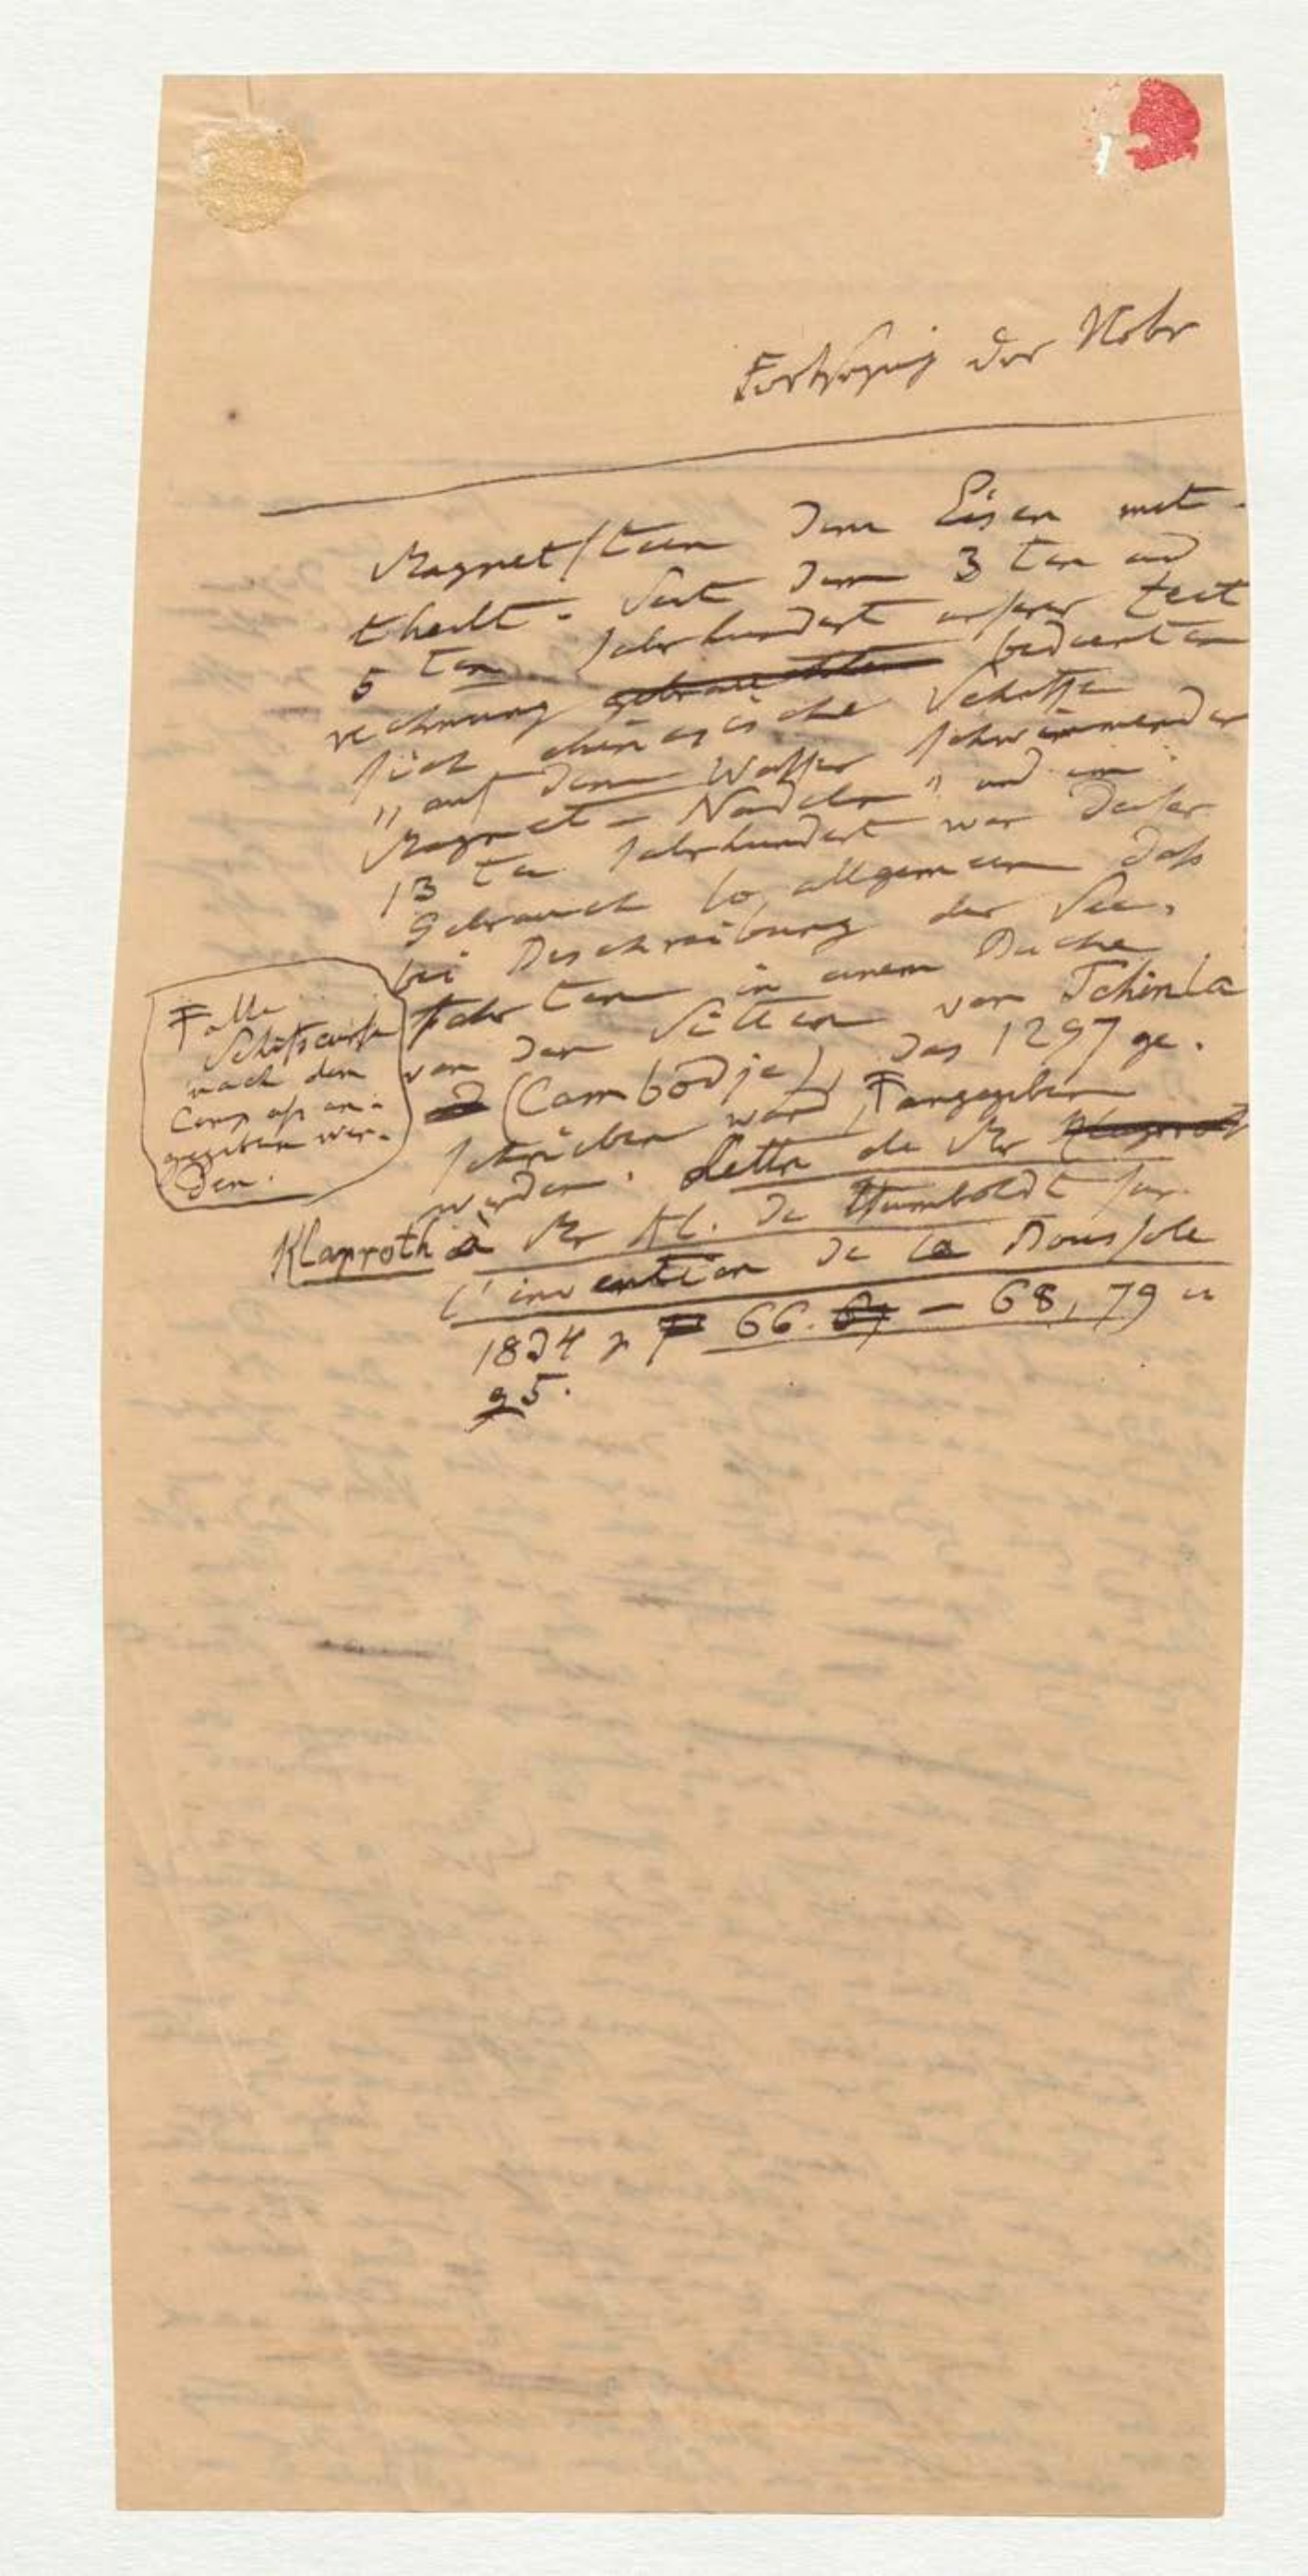 Fortsezung der Note
Magnetstein dem Eisen mit-
theilt. Seit dem 3 ten und
5 ten Jahrhundert unsrer Zeit
rechnung gebrauchten bedienten
sich chinesische Schiffe
„auf dem Wasser schwimmender
Magnet-Nadeln" und im
13 ten Jahrhundert war dieser
Gebrauch so allgemein daß
bei Beschreibung der See-
fahrten in einem Buche
von den Sitten von Tchinla
(Cambodja), das 1297 ge-
schrieben ward, Ŧ angegeben
werden. Lettre de Mr Klaproth
Klaproth à Mr Al. de Humboldt sur
l'invention de la Boussole
1834 p 66. 67 – 68, 79 u
95.
Ŧ alle
Schifscurse
nach dem
Compass an-
gegeben wer-
den.